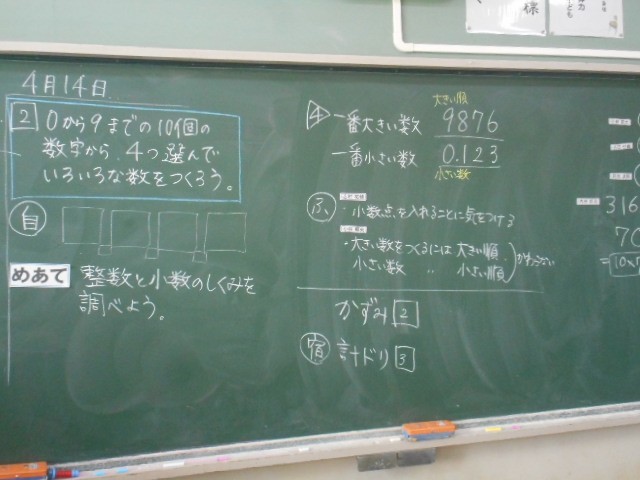 4月14日
2 0から9までの10個の
数字から、4つ選んで
いろいろな数をつくろう。
自
めあて 整数と小数のしくみを
調べよう。
大きい順
4 一番大きい数 9876
一番小さい数 0.123
小さい数
ふ ・小数点を入れることに気をつける
・大きい数をつくるには 大きい順
小さい数 〃 小さい順
かわらない
かずみ 2
宿 計ドリ 3
316
70
様